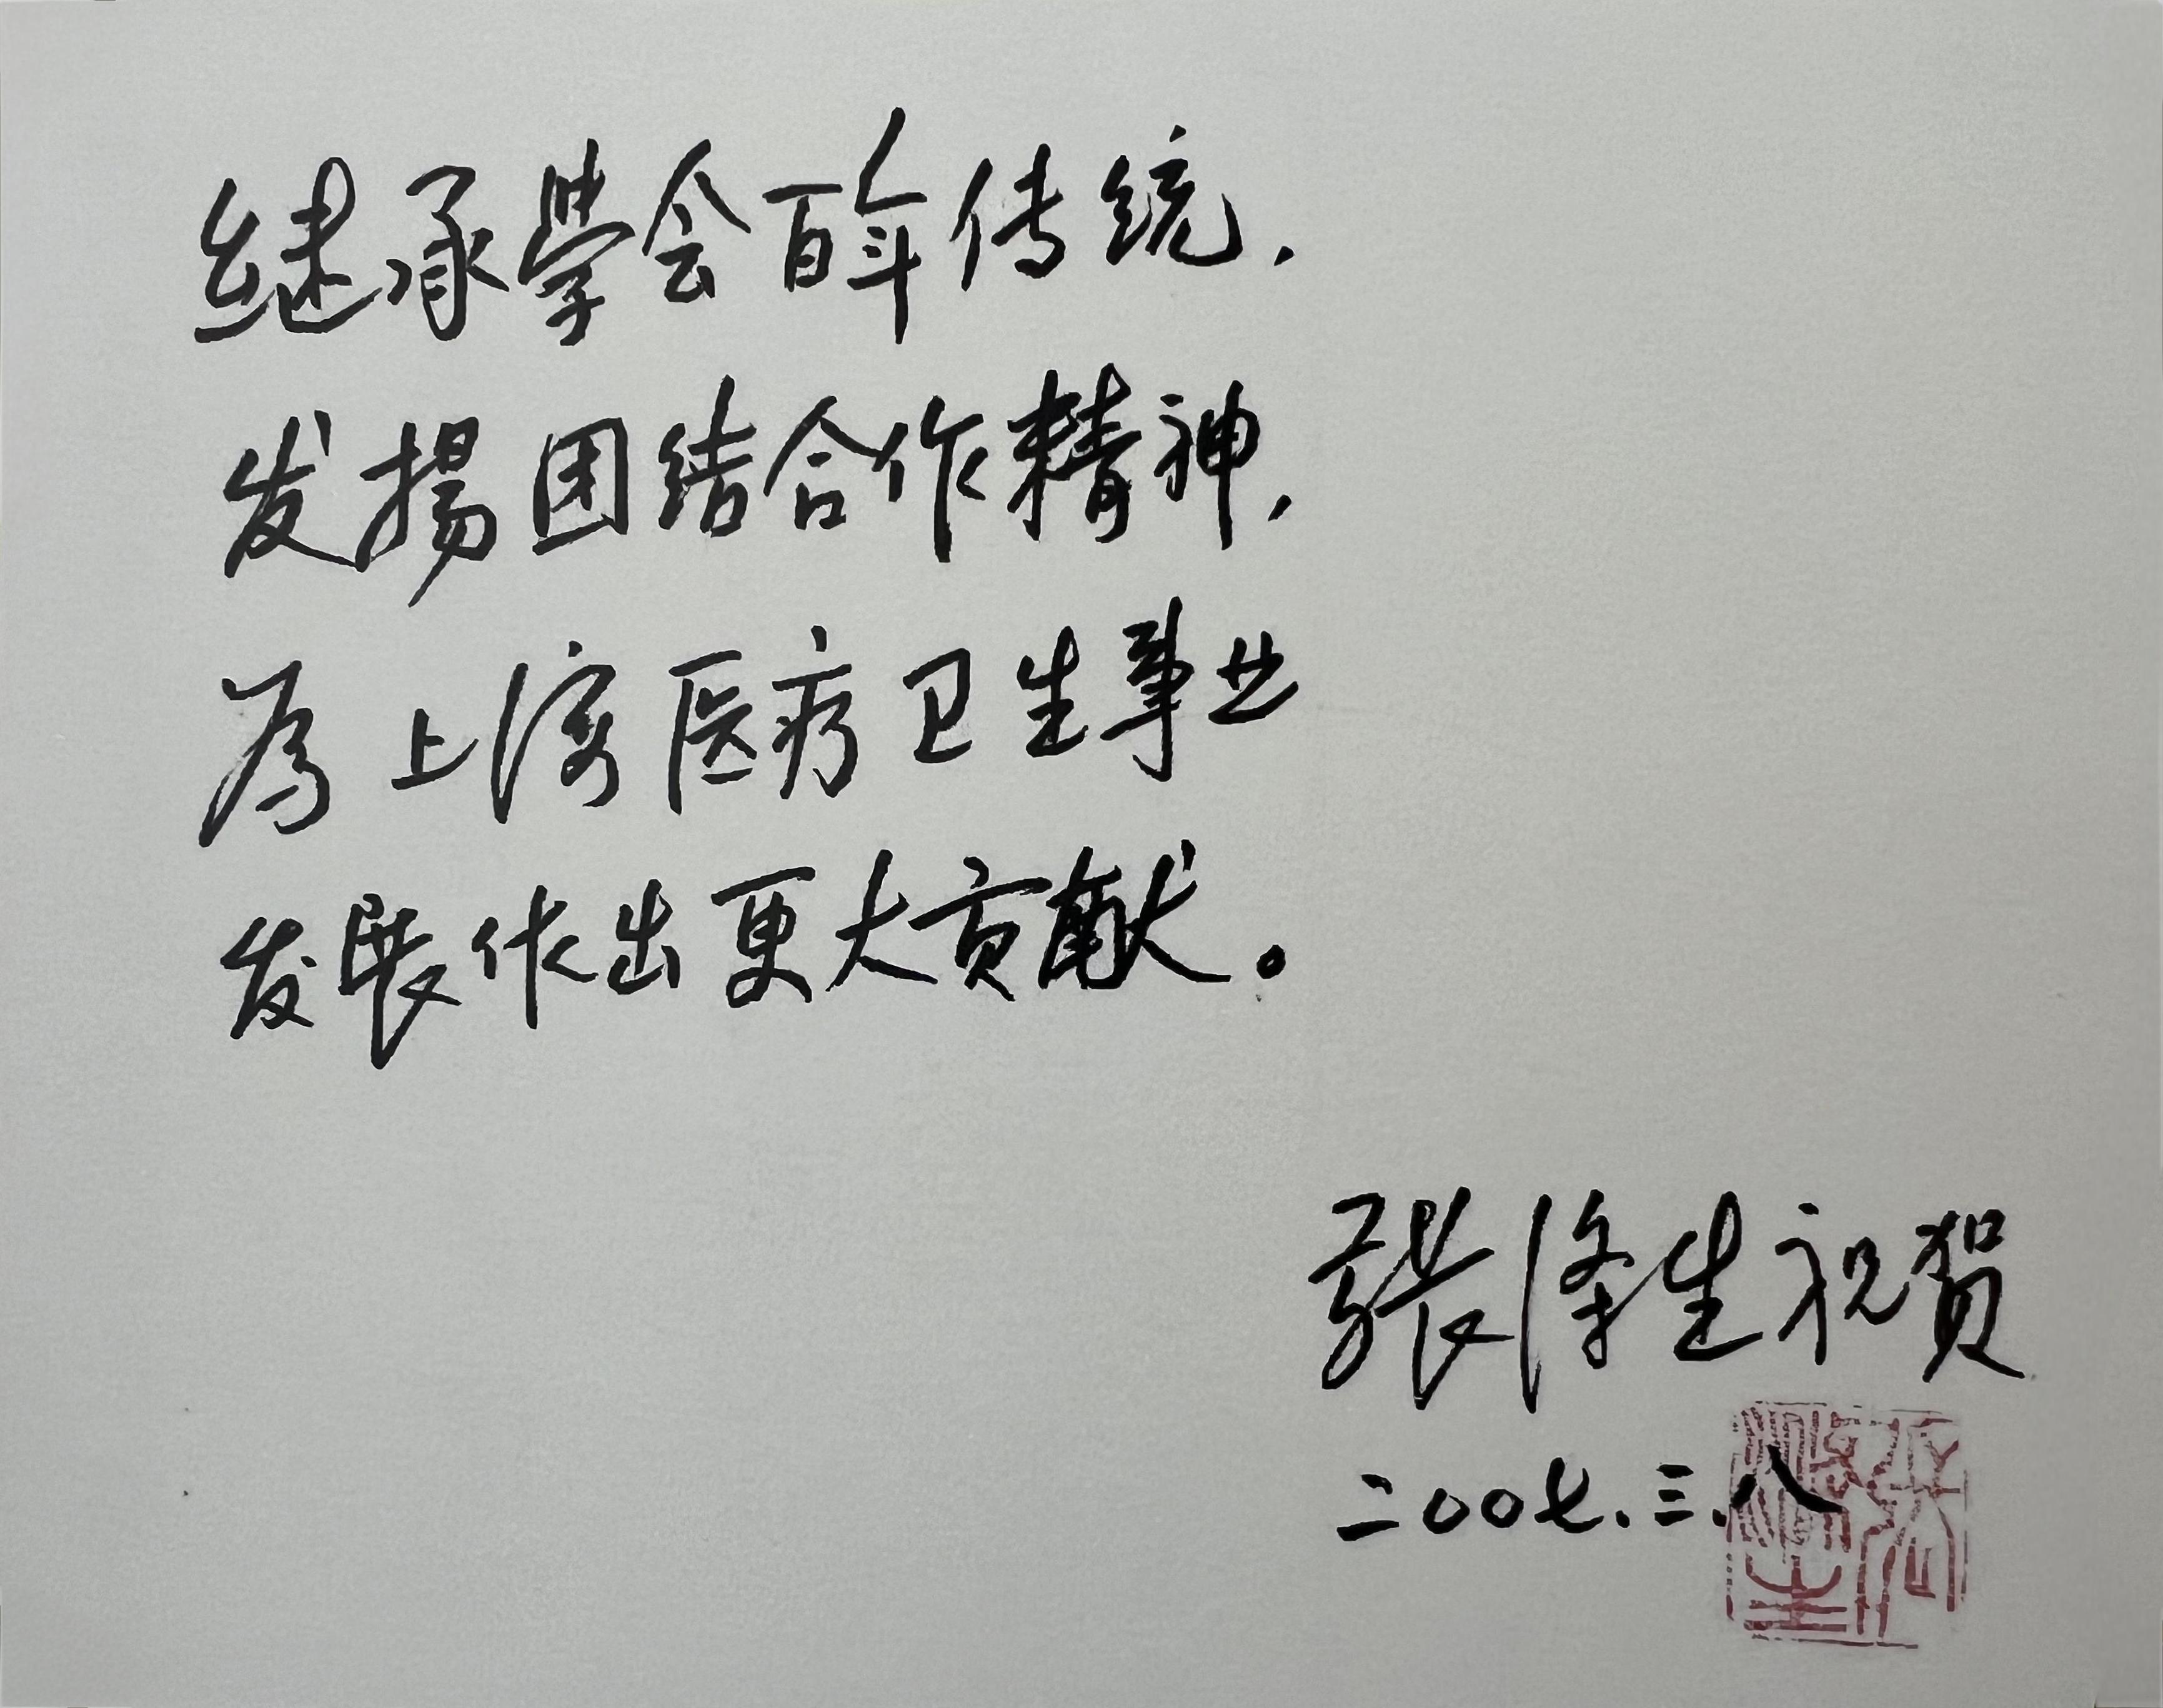 继承学会百年传统，
发揚团结合作精神，
为上海医疗卫生事业
发展作出更大贡献。
張滌生祝贺
二〇〇七.三.八